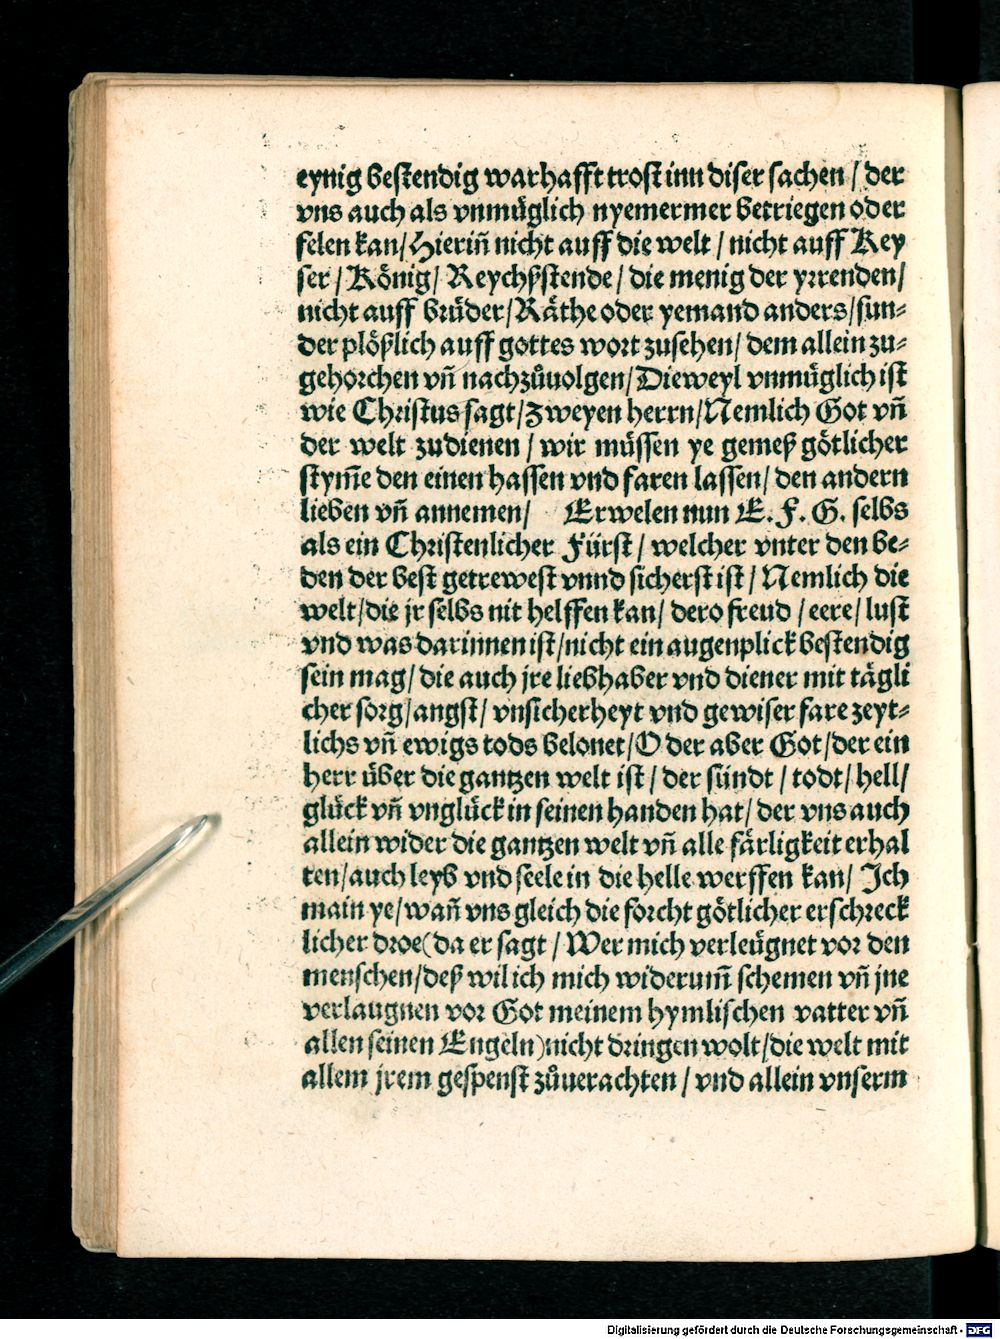 eynig bestendig warhafft trost inn diser sachen / der
vns auch als vnmüglich nyemermer betriegen oder
felen kan / Hieriñ nicht auff die welt / nicht auff Key
ser / König / Reychßstende / die menig der yrrenden /
nicht auff brüder / Räthe oder yemand anders / sun-
der plößlich auff gottes wort zusehen / dem allein zu-
gehorchen vñ nachzůuolgen / Dieweyl vnmüglich ist
wie Christus sagt / Zweyen herrn / Nemlich Got vñ
der welt zudienen / wir müssen ye gemeß götlicher
stym̃e den einen hassen vnd faren lassen / den andern
lieben vñ annemen / Erwelen nun E. F. G. selbs
als ein Christenlicher Fürst / welcher vnter den be-
den der best getrewest vnnd sicherst ist / Nemlich die
welt / die jr selbs nit helffen kan / dero freud / eere / lust
vnd was darinnen ist / nicht ein augenplick bestendig
sein mag / die auch jre liebhaber vnd diener mit tägli
cher sorg / angst / vnsicherheyt vnd gewiser fare zeyt-
lichs vñ ewigs tods belonet / O der aber Got / der ein
herr über die gantzen welt ist / der sündt / todt / hell /
glück vñ vnglück in seinen handen hat / der vns auch
allein wider die gantzen welt vñ alle färligkeit erhal
ten / auch leyb vnd seele in die helle werffen kan / Ich
main ye / wañ vns gleich die forcht götlicher erschreck
licher droe (da er sagt / Wer mich verleügnet vor den
menschen / deß wil ich mich widerum̃ schemen vñ jne
verlaugnen vor Got meinem hymlischen vatter vñ
allen seinen Engeln) nicht dringen wolt / die welt mit
allem jrem gespenst zůuerachten / vnd allein vnserm
Digitalisierung gefördert durch die Deutsche Forschungsgemeinschaft - DFG